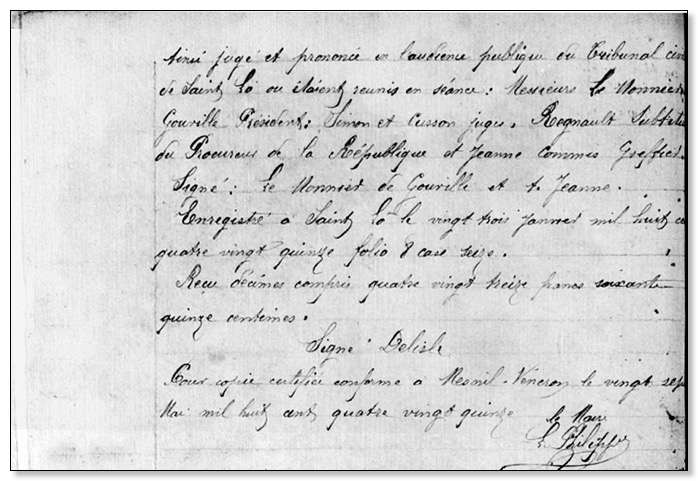 Ainsi jugé et prononcé en l'audience publique du Tribunal civ
de Saint Lô ou étaient reunis en séance : Messieurs Le Monnier
Gouville Président ; Simon et Cusson juges, Regnault Substitu
du Procureur de la République et Jeanne Commis Greffier.
Signé : Le Monnier de Gouville et t. Jeanne.
Enregistré à Saint Lô le vingt trois Janvier mil huit c
quatre vingt quinze folio 8 case seize.
Reçu décimes compris quatre vingt treize francs soixante
quinze centimes.
Signé Delisle
Pour copie certifiée conforme à Mesnil-Véneron le vingt sep
Mai mil huit cent quatre vingt quinze
le Maire
L. Philippe